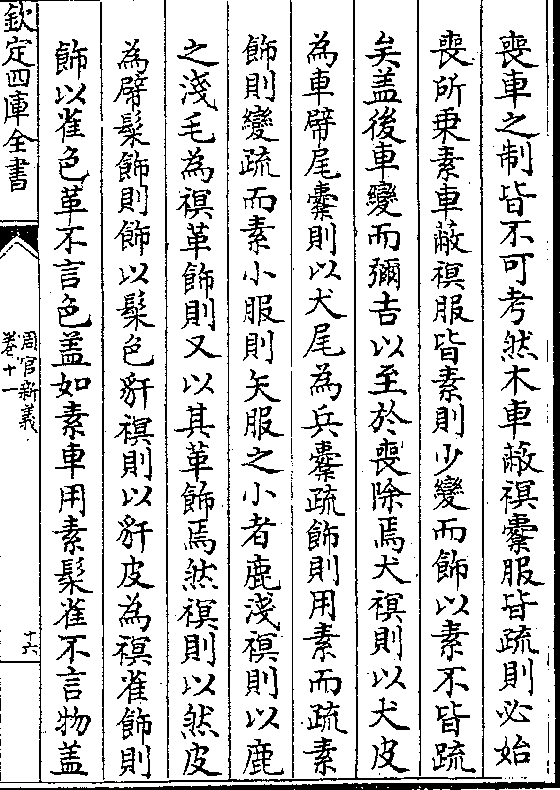 喪車之制皆不可考然木車蔽䙪櫜服皆疏則必始
喪所乗素車蔽䙪服皆素則少變而飾以素不皆疏
矣盖後車變而彌吉以至於喪除焉犬䙪則以犬皮
為車䙪尾櫜則以犬尾為兵櫜疏飾則用素而疏素
飾則變疏而素小服則矢服之小者鹿淺䙪則以鹿
之淺毛為䙪革飾則又以其革飾焉然䙪則以然皮
為䙪髤飾則飾以髤色豻䙪則以豻皮為䙪雀飾則
飾以雀色革不言色蓋如素車用素髤雀不言物盖
欽定四庫全書
周官新義
卷十一
十六